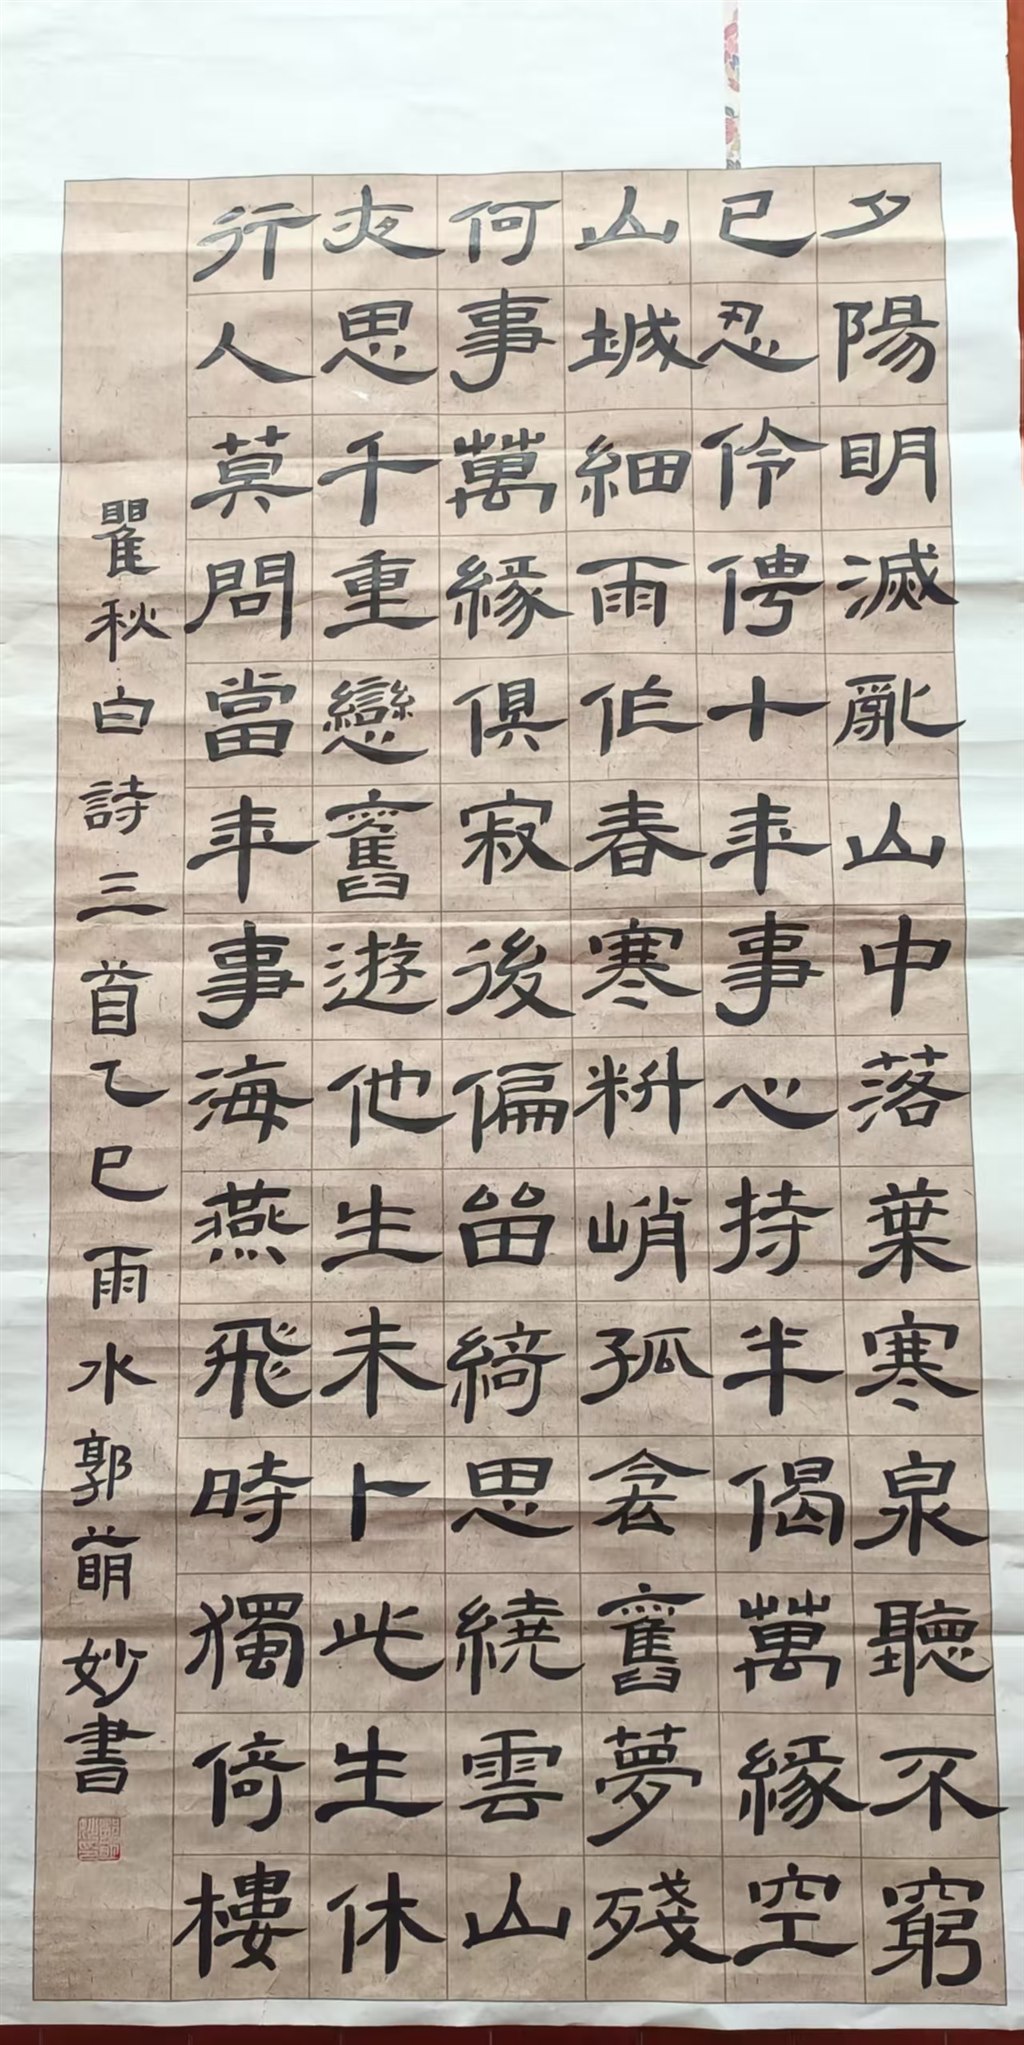 夕陽明滅亂山中落葉寒泉聽不窮
已忍伶俜十年事心持半偈萬緣空
山城細雨作春寒料峭孤衾舊夢殘
何事萬緣俱寂後偏留綺思繞雲山
夜思千重戀舊遊他生未卜此生休
行人莫問當年事海燕飛時獨倚樓
瞿秋白詩三首乙巳雨水郭萌妙書